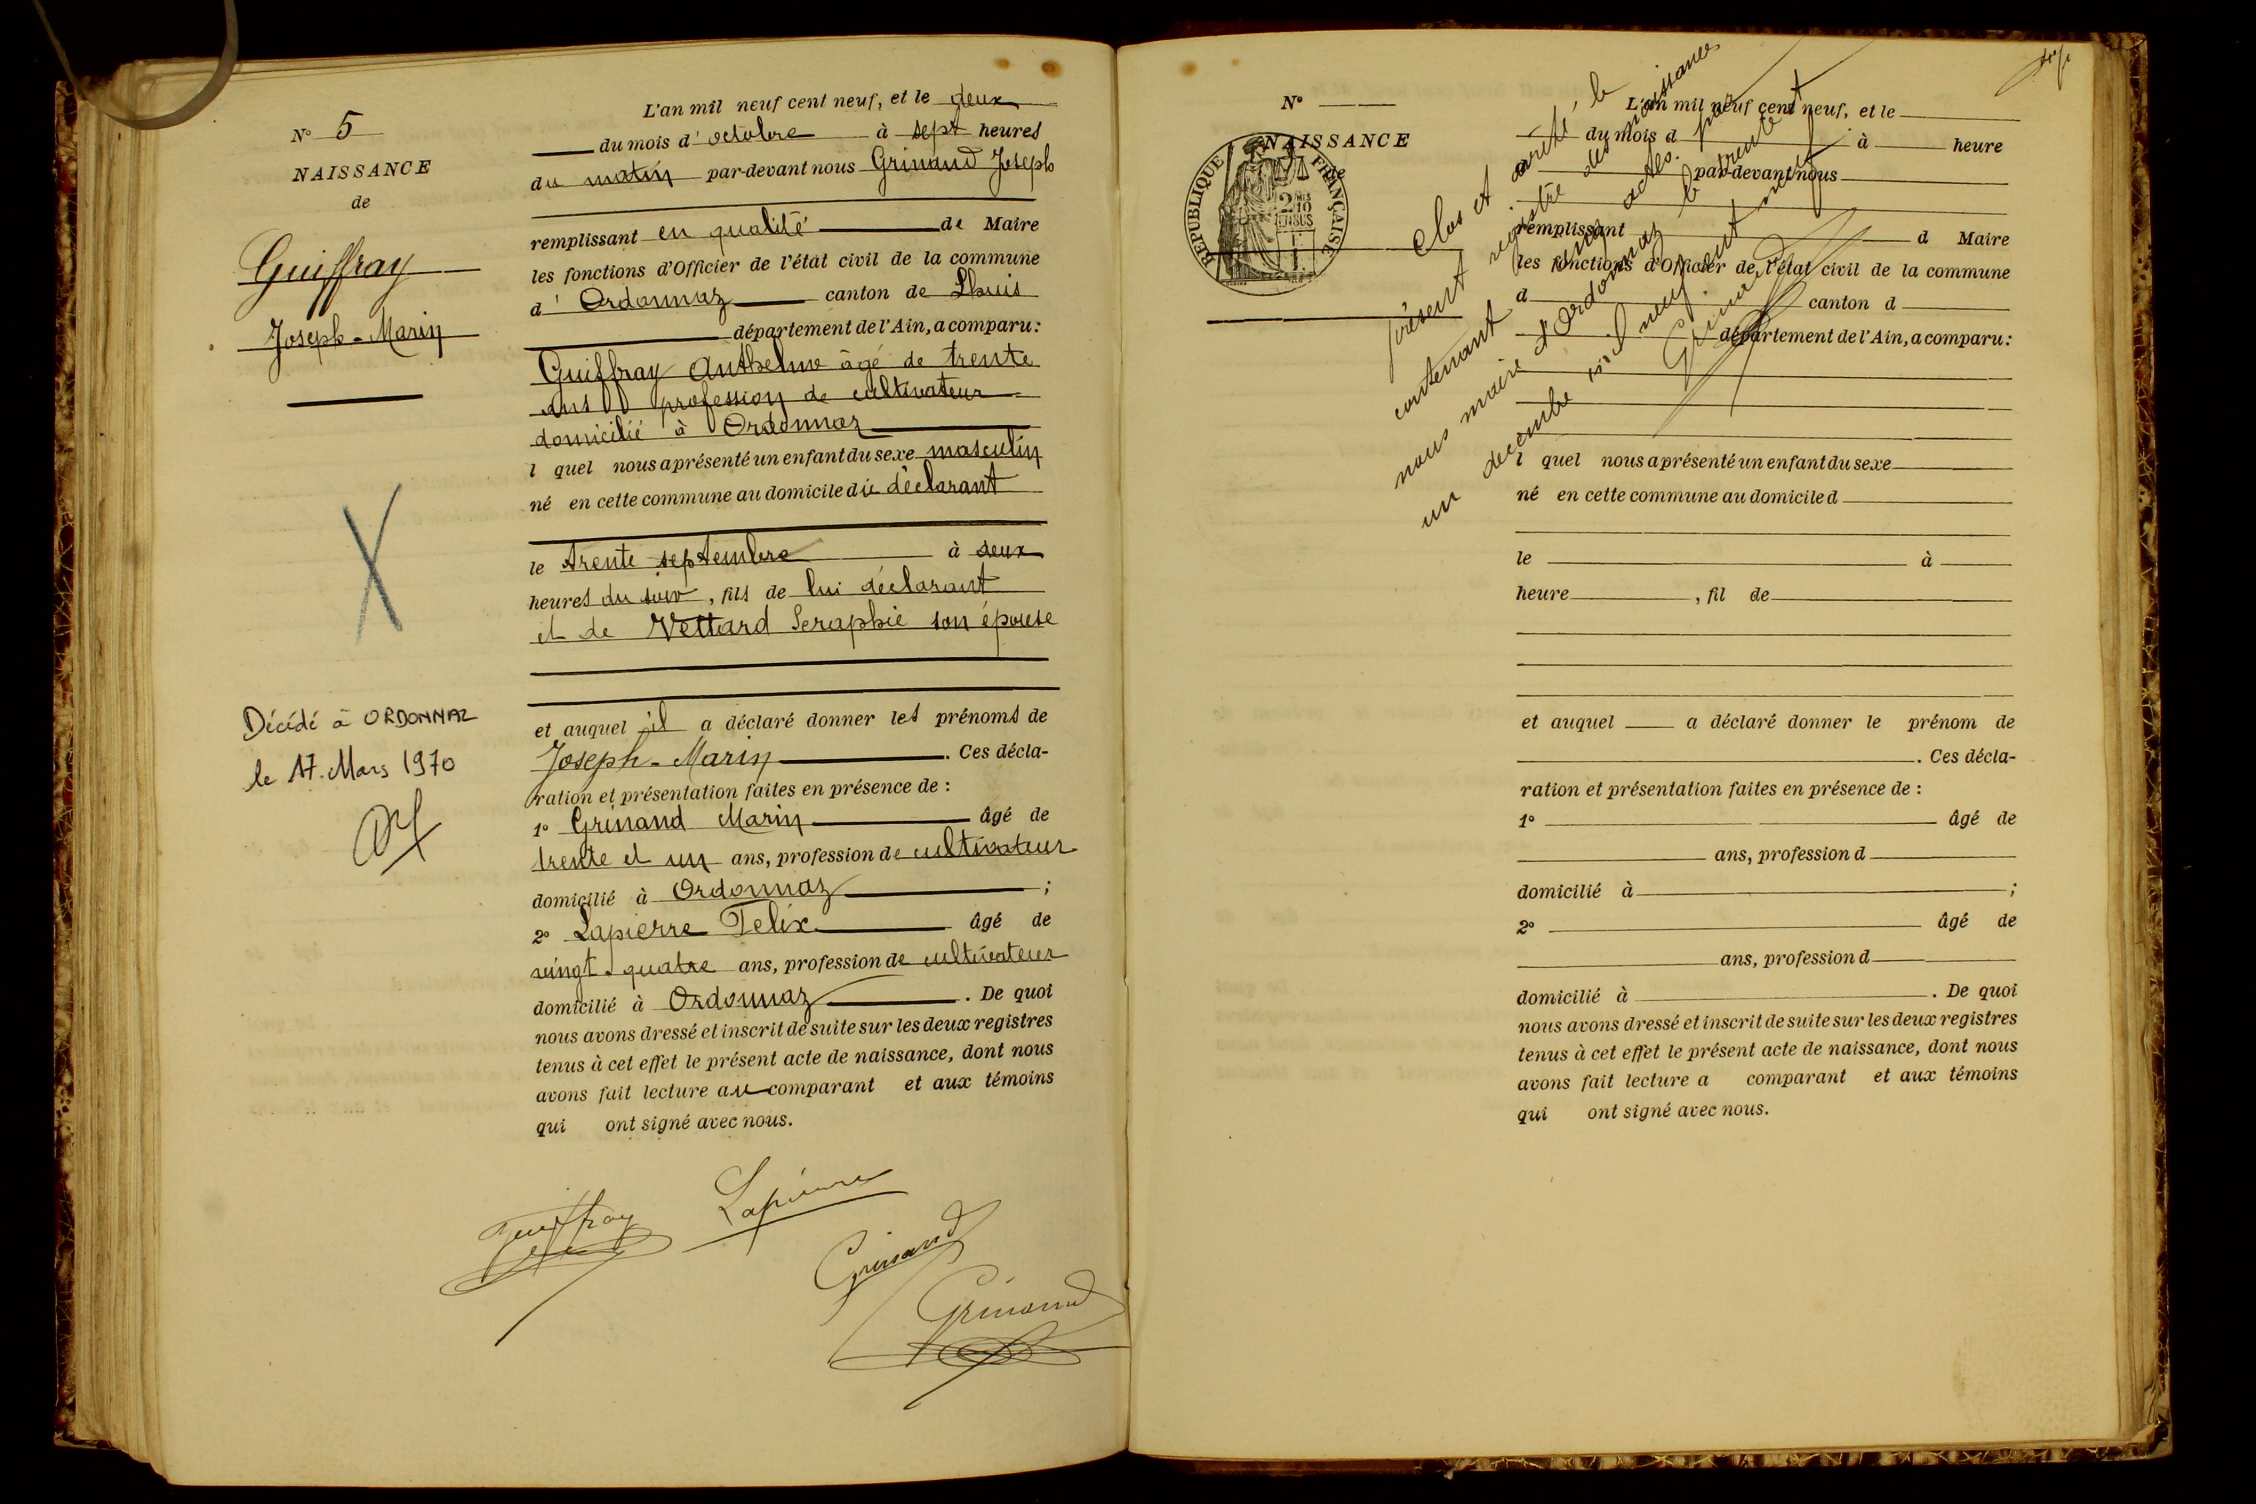 N° 5
NAISSANCE
de
Guiffray
Joseph-Marin
Décédé à ORDONNAZ
le 17. Mars 1970
L'an mil neuf cent neuf, et le deux
du mois d'octobre à sept heures
du matin par-devant nous Grinand Joseph
remplissant en qualité de Maire
les fonctions d'Officier de l'état civil de la commune
d'Ordonnaz canton de Lhuis
département de l'Ain, a comparu :
Guiffray Anthelme âgé de trente
ans profession de cultivateur
domicilié à Ordonnaz
l quel nous a présenté un enfant du sexe masculin
né en cette commune au domicile du déclarant
le trente septembre à deux
heures du soir, fils de lui déclarant
et de Vettard Seraphie son épouse
et auquel il a déclaré donner les prénoms de
Joseph-Marin. Ces décla-
ration et présentation faites en présence de :
1° Grinand Marin âgé de
trente et un ans, profession de cultivateur
domicilié à Ordonnaz ;
2° Lapierre Felix âgé de
vingt-quatre ans, profession de cultivateur
domicilié à Ordonnaz. De quoi
nous avons dressé et inscrit de suite sur les deux registres
tenus à cet effet le présent acte de naissance, dont nous
avons fait lecture au comparant et aux témoins
qui ont signé avec nous.
Guiffray
Lapierre
Grinand
Grinand
N°
NAISSANCE
de
REPUBLIQUE FRANÇAISE
L'an mil neuf cent neuf, et le
du mois d à heure
par-devant nous
remplissant d Maire
les fonctions d'Officier de l'état civil de la commune
d canton d
département de l'Ain, a comparu :
l quel nous a présenté un enfant du sexe
né en cette commune au domicile d
le à
heure , fil de
et auquel a déclaré donner le prénom de
. Ces décla-
ration et présentation faites en présence de :
1° âgé de
ans, profession d
domicilié à ;
2° âgé de
ans, profession d
domicilié à . De quoi
nous avons dressé et inscrit de suite sur les deux registres
tenus à cet effet le présent acte de naissance, dont nous
avons fait lecture a comparant et aux témoins
qui ont signé avec nous.
Clos et arrêté le
présent registre des naissances
contenant cinq actes. par
nous maire d'Ordonnaz le trente et
un decembre mil neuf cent neuf
Grinand